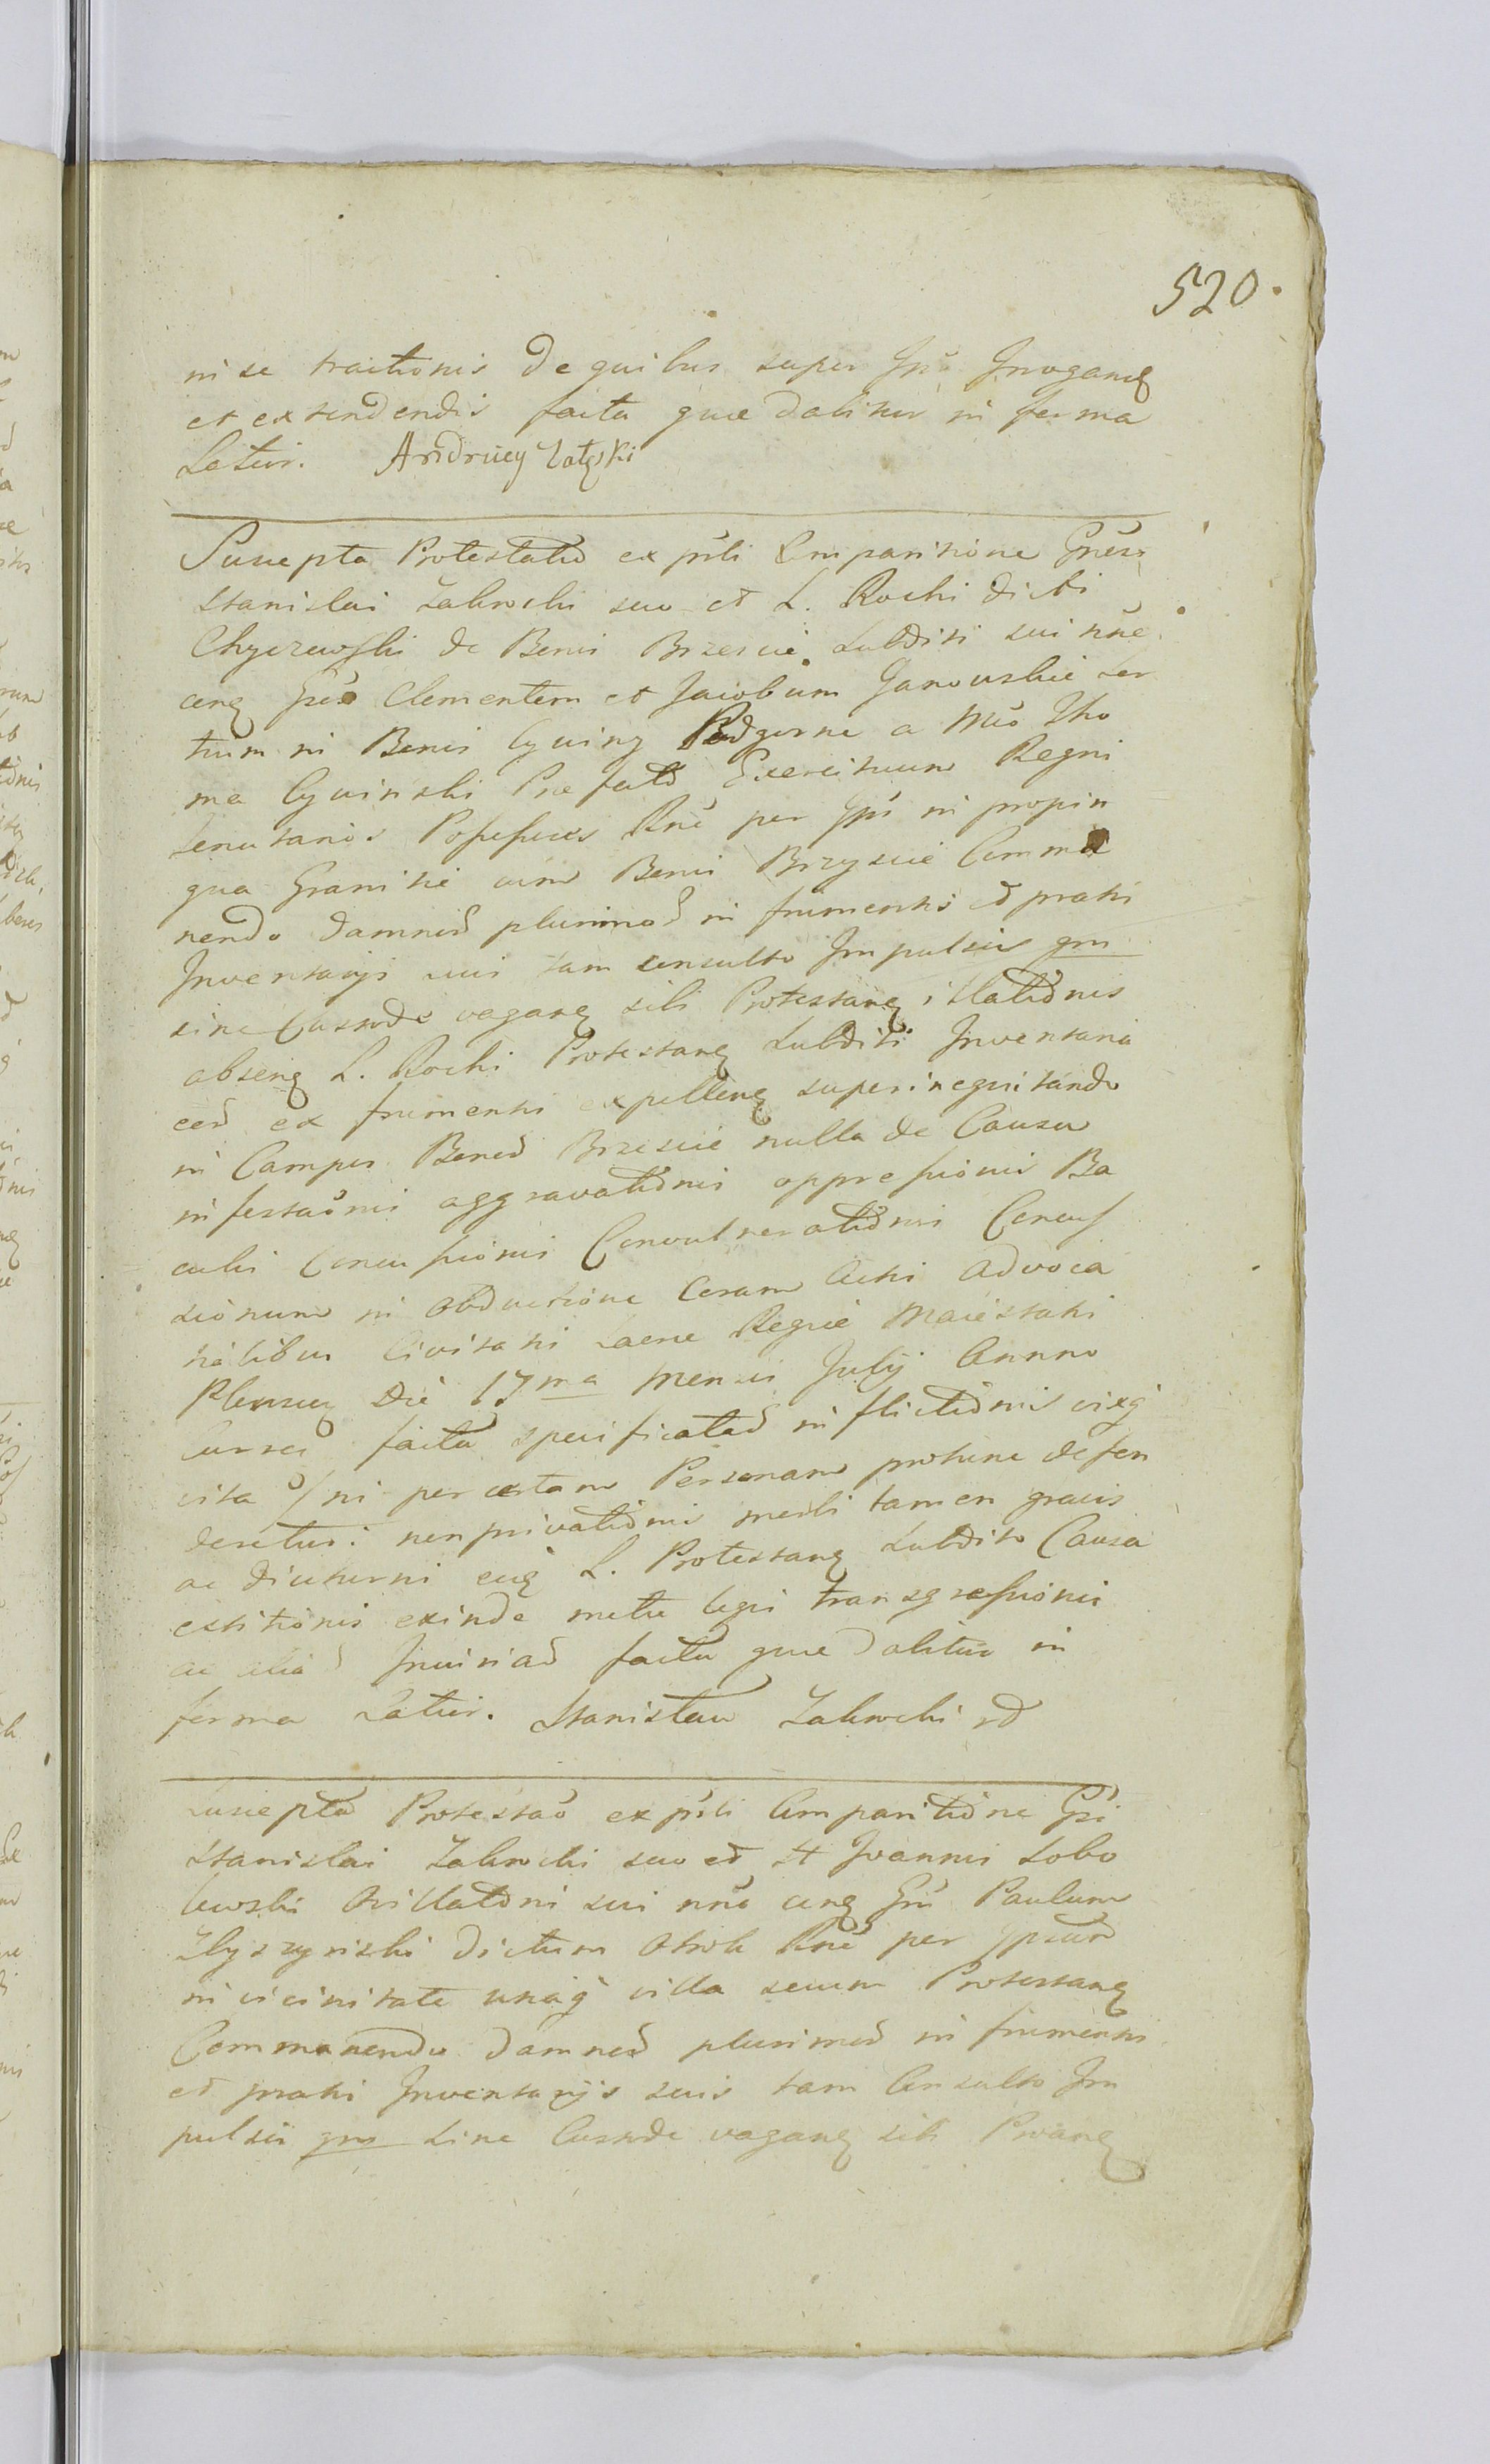 520.
ni se tractionis de quibus super Irrogand
et extendendis facta quæ dabitur in forma
Latiori. Andrzey
Suscepta Protestatio ex psti Comparitione Gnesi
Stanislai Zabrocki suo et L. Rochi dicti
Chyczewski de Bonis Brzescie Subditi sui nne
ctra Gsos Clementem et Jacobum Janowskie
tium in Bonis Cywiny Podgorne a Mco Tho
ma Cywinski Præfato Exercituum Regni
tenutarios Possessores Rne per Ipsos in propin
qua Granitie cum Bonis Brzyscie Comma
nendo damnoru plurimoru in frumentis et pratis
Inventarijs suis tam consulto Impulsis qm
sine Custode vagant sibi Protestant illationis
absent L. Rochi Protestant Subditi Inventaria
eoru ex frumentis expellent superinequitando
in Campis Bonoru Brzescie nulla de Causa
infestaonis aggravationis oppressionis Ba
culis Concussionis Convulnerationis Concus
sionum in obductione Coram Actis Advoca
tialibus Civitatis Sacræ Regiæ Maiestatis
Plocen Die 17ma Mensis Julij Anno
Curren facta specificataru inflictionis vixq
vita /ni per certam Personam protunc defen
deretur: non privationis morbi tamen gravis
ac diuturni L. Protestant Subdito Causa
tionis exinde metu legis transgressionis
ac aliaru Iniuriaru facta quæ dabitur in
forma Latiori. Stanisław Zabrocki
Suscepta Protestao ex psti Comparitione Gsi
Stanislai Zabrocki suo et Joannis Sobo
lewski Advillatoni sui nne ctra Gsu Paulum
Zbyszynski dictum Rne per Ipsum
in vicinitate unaq villa secum Protestant
Commanendo damnoru plurimoru in frumentis
et pratis Inventarijs suis tam Consulto Im
pulsis qm sine Custode vagant sibi